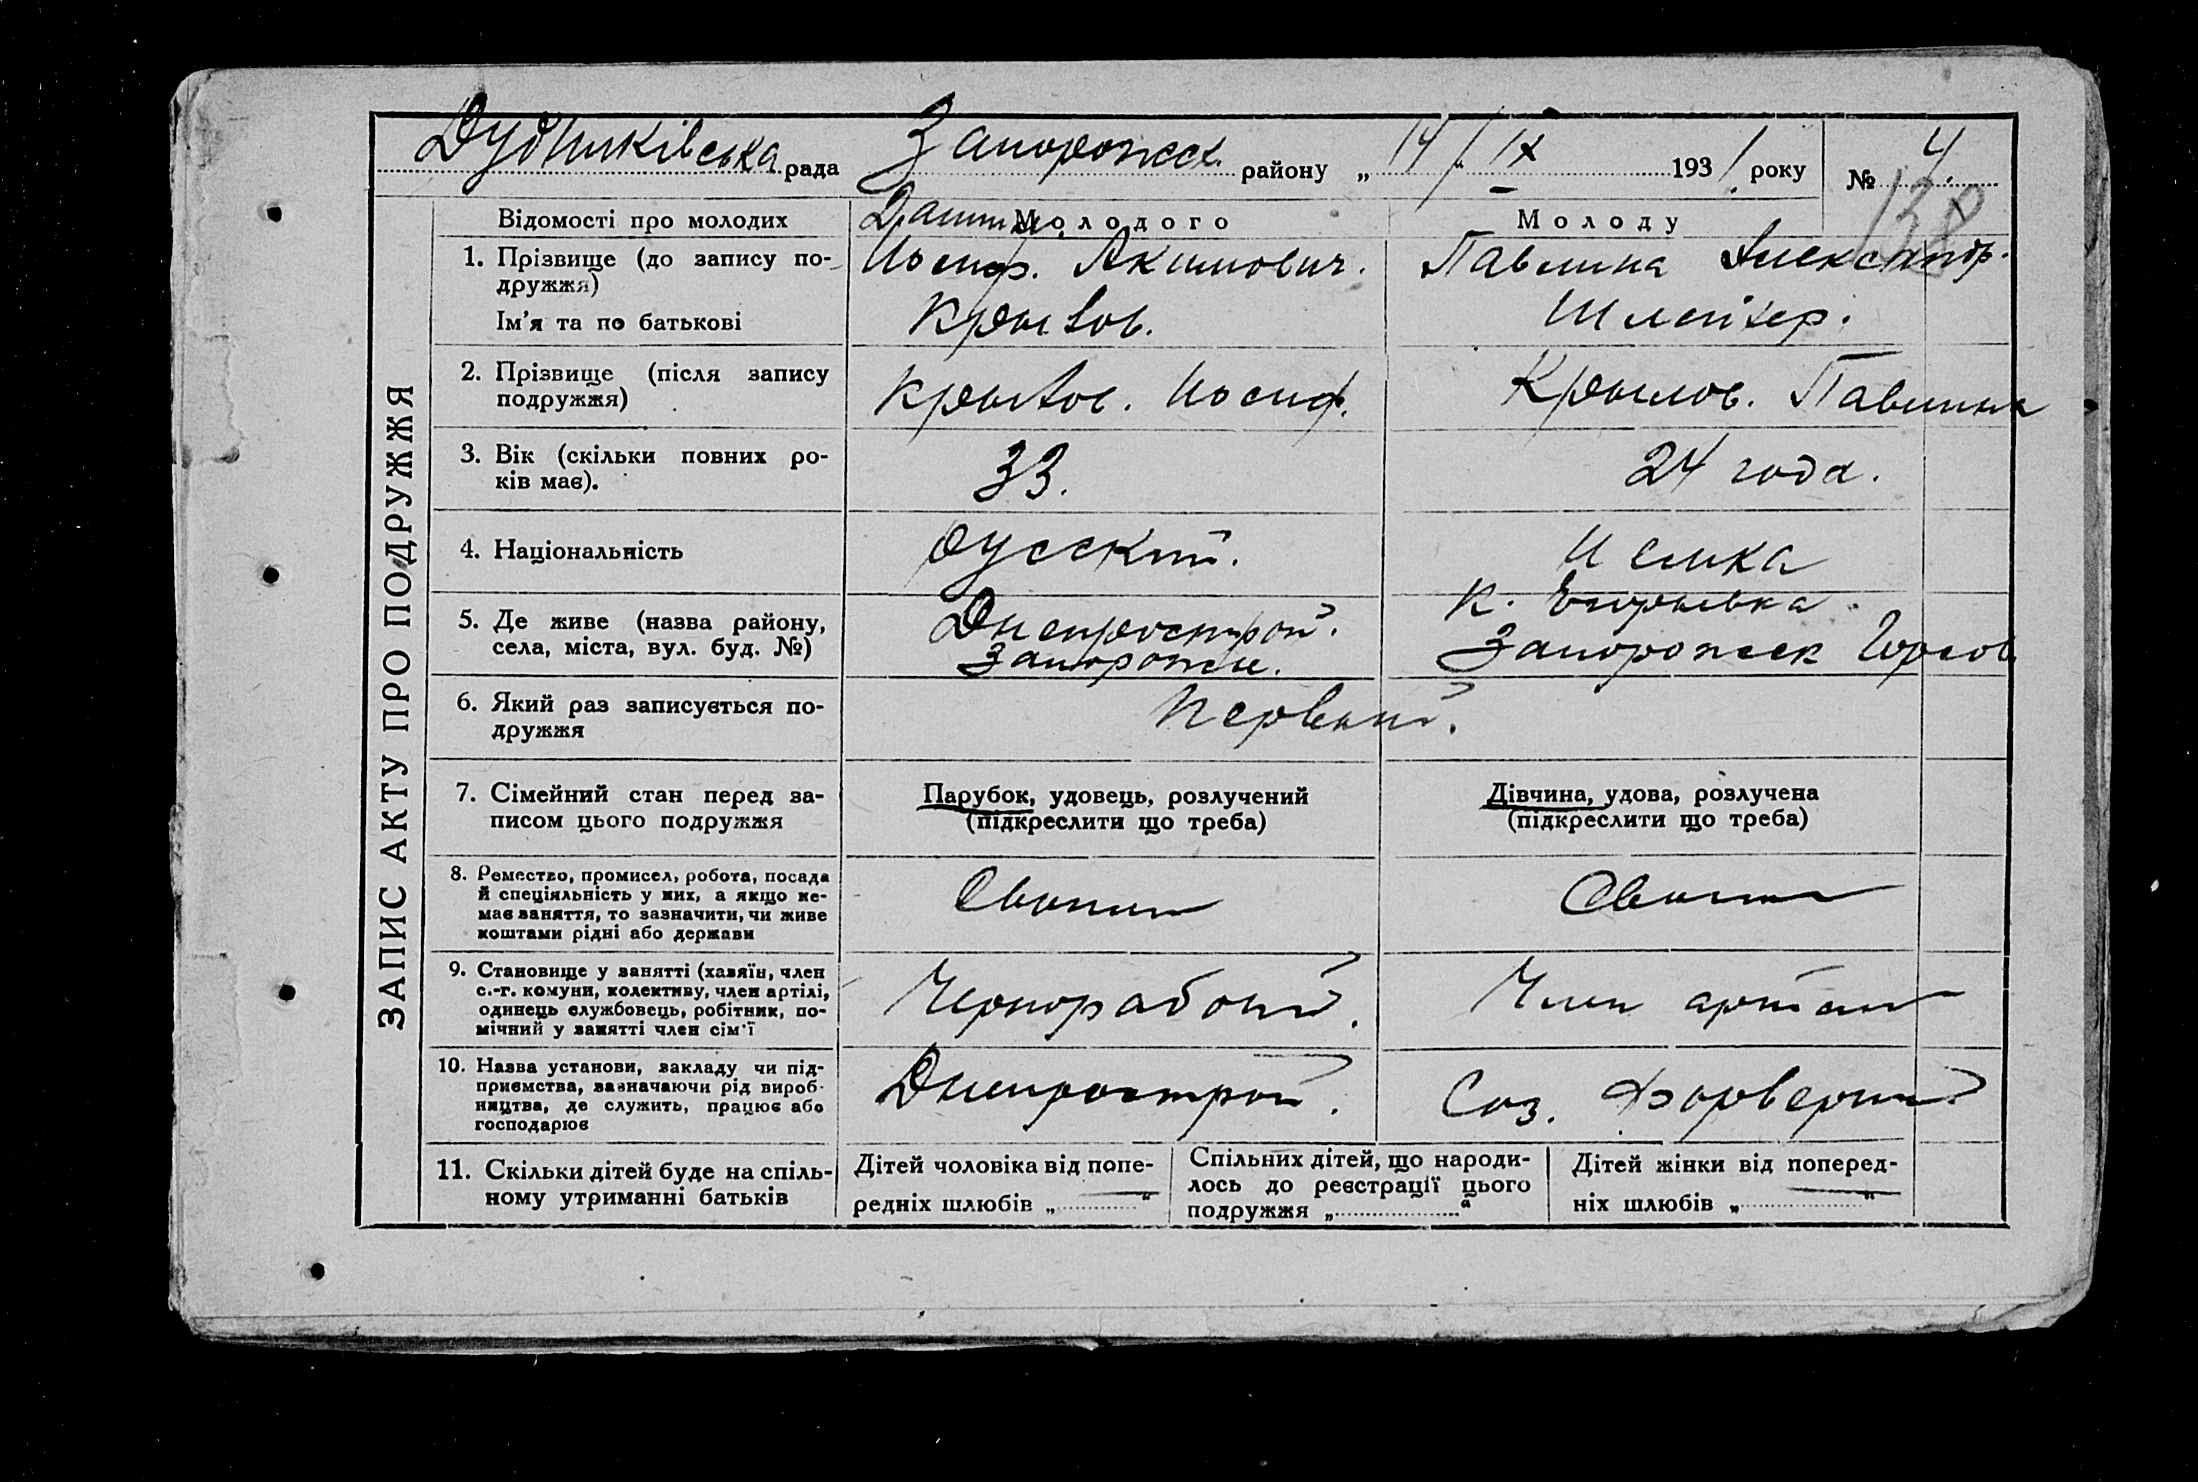 ЗАПИС АКТУ ПРО ПОДРУЖЖЯ
Дудниківська рада Запорожск. району „ 14 “ IX 1931 року № 4.
138
Відомості про молодих
Молодого
Молоду
1. Прізвище (до запису по-
дружжя)
Ім'я та по батькові
Иосиф. Акимович.
Крылов.
Павлина Александр.
Шлейхер.
2. Прізвище (після запису
подружжя)
Крылов. Иосиф.
Крылов. Павлина
3. Вік (скільки повних ро-
ків має).
33.
24 года.
4. Національність
Русский.
Немка
5. Де живе (назва району,
села, міста, вул. буд. №)
Днепрострой.
Запорожье.
к.
Запорожск
6. Який раз записується по-
дружжя
Первый.
7. Сімейний стан перед за-
писом цього подружжя
Парубок, удовець, розлучений
(підкреслити що треба)
Дівчина, удова, розлучена
(підкреслити що треба)
8. Ремество, промисел, робота, посада
й спеціяльність у них, а якщо не-
має заняття, то зазначити, чи живе
коштами рідні або держави
9. Становище у занятті (хазяїн, член
с.-г. комуни, колективу, член артілі,
одинець службовець, робітник, по-
мічний у занятті член сім'ї
Чернорабочий.
Член артели
10. Назва установи, закладу чи під-
приємства, зазначаючи рід вироб-
ництва, де служить, працює або
господарює
Днепрострой.
Соз. Форверти
11. Скільки дітей буде на спіль-
ному утриманні батьків
Дітей чоловіка від попе-
редніх шлюбів „ — “
Спільних дітей, що народи-
лось до реєстрації цього
подружжя „ “
Дітей жінки від поперед-
ніх шлюбів „ — “